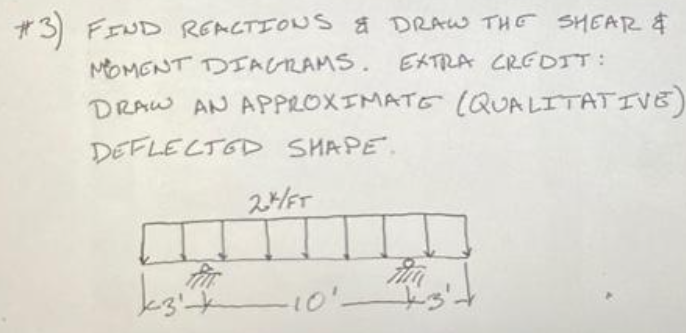 #3) FIND REACTIONS & DRAW THE SHEAR &
MOMENT DIAGRAMS. EXTRA CREDIT:
DRAW AN APPROXIMATE (QUALITATIVE)
DEFLECTED SHAPE.
2k/FT
3' 10' 3'